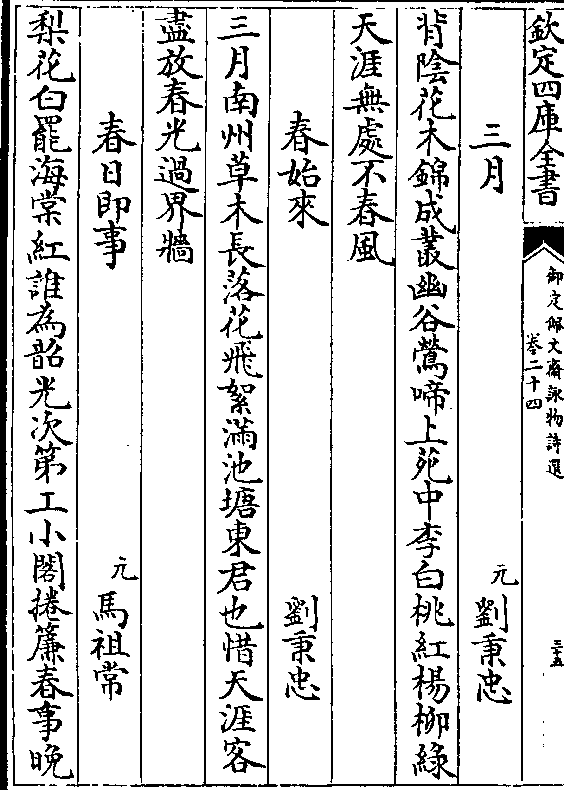 欽定四庫全書
御定佩文齋詠物詩選
卷二十四
三十五
三月
元
劉秉忠
背陰花木錦成叢幽谷鶯啼上苑中李白桃紅楊柳綠
天涯無處不春風
春始來
劉秉忠
三月南州草木長落花飛絮滿池塘東君也惜天涯客
盡放春光過界牆
春日即事
元
馬祖常
梨花白罷海棠紅誰為韶光次第工小閣捲簾春事晚